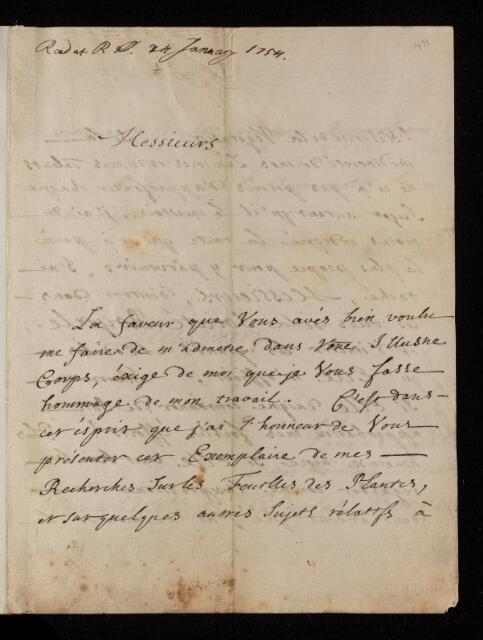 Read at R S. 24 January 1754.
Messieurs
La faveur que Vous avés bien voulu
me faire de m'admetre dans Votre Illustre
Corps, éxige de moi que je Vous fasse
hommage de mon travail. C'est dans
cet ésprit que j'ai l'honneur de Vous
présenter cet Exemplaire de mes
Recherches sur les Feuilles des Plantes,
et sur quelques autres Sujets rélatifs à